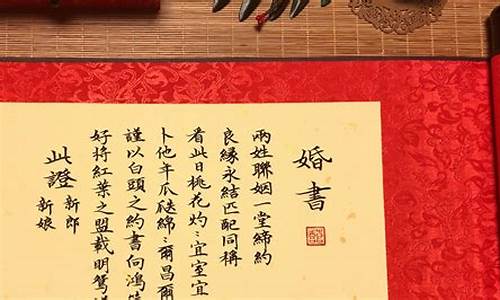 婚書
兩姓聯姻一堂締約
良緣永結匹配同稱
看此日桃花灼〻宜室宜
卜他年瓜瓞綿〻爾昌爾
謹以白頭之約書向鴻
好將紅葉之盟載明鴛
此證
新郎
新娘